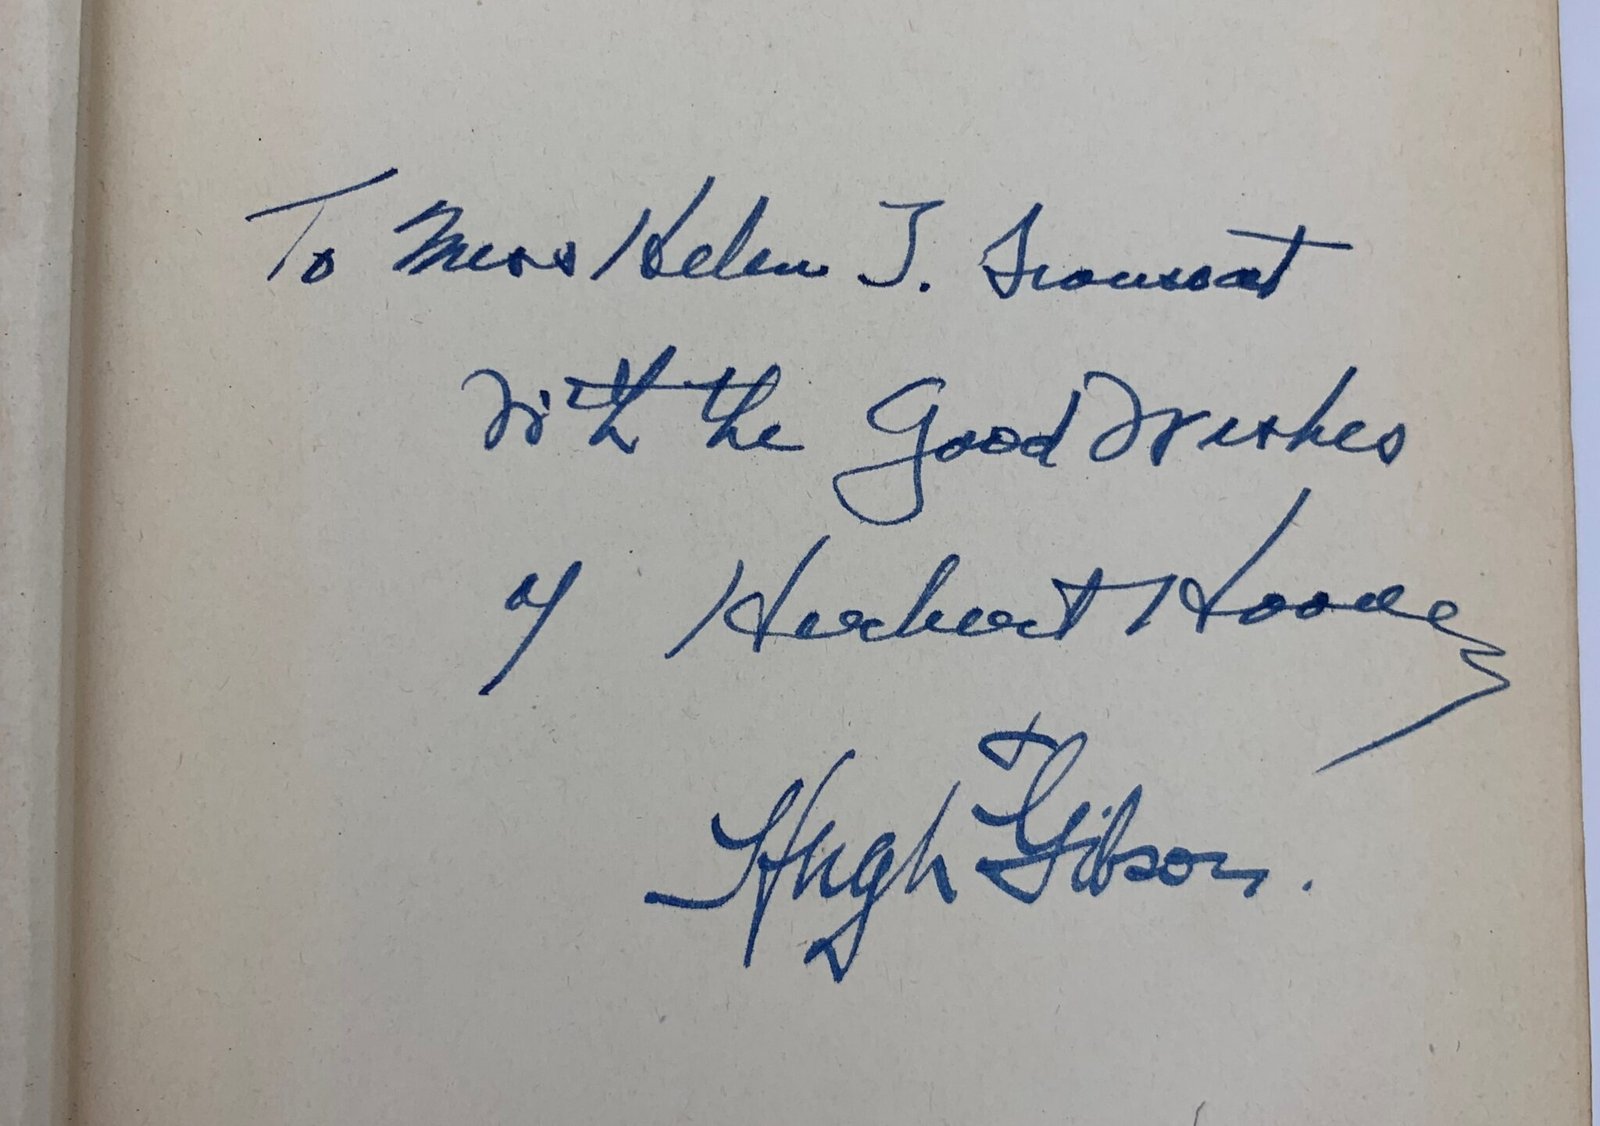 To Miss Helen T.
With the Good Wishes
of Herbert Hoover
Hugh Gibson.